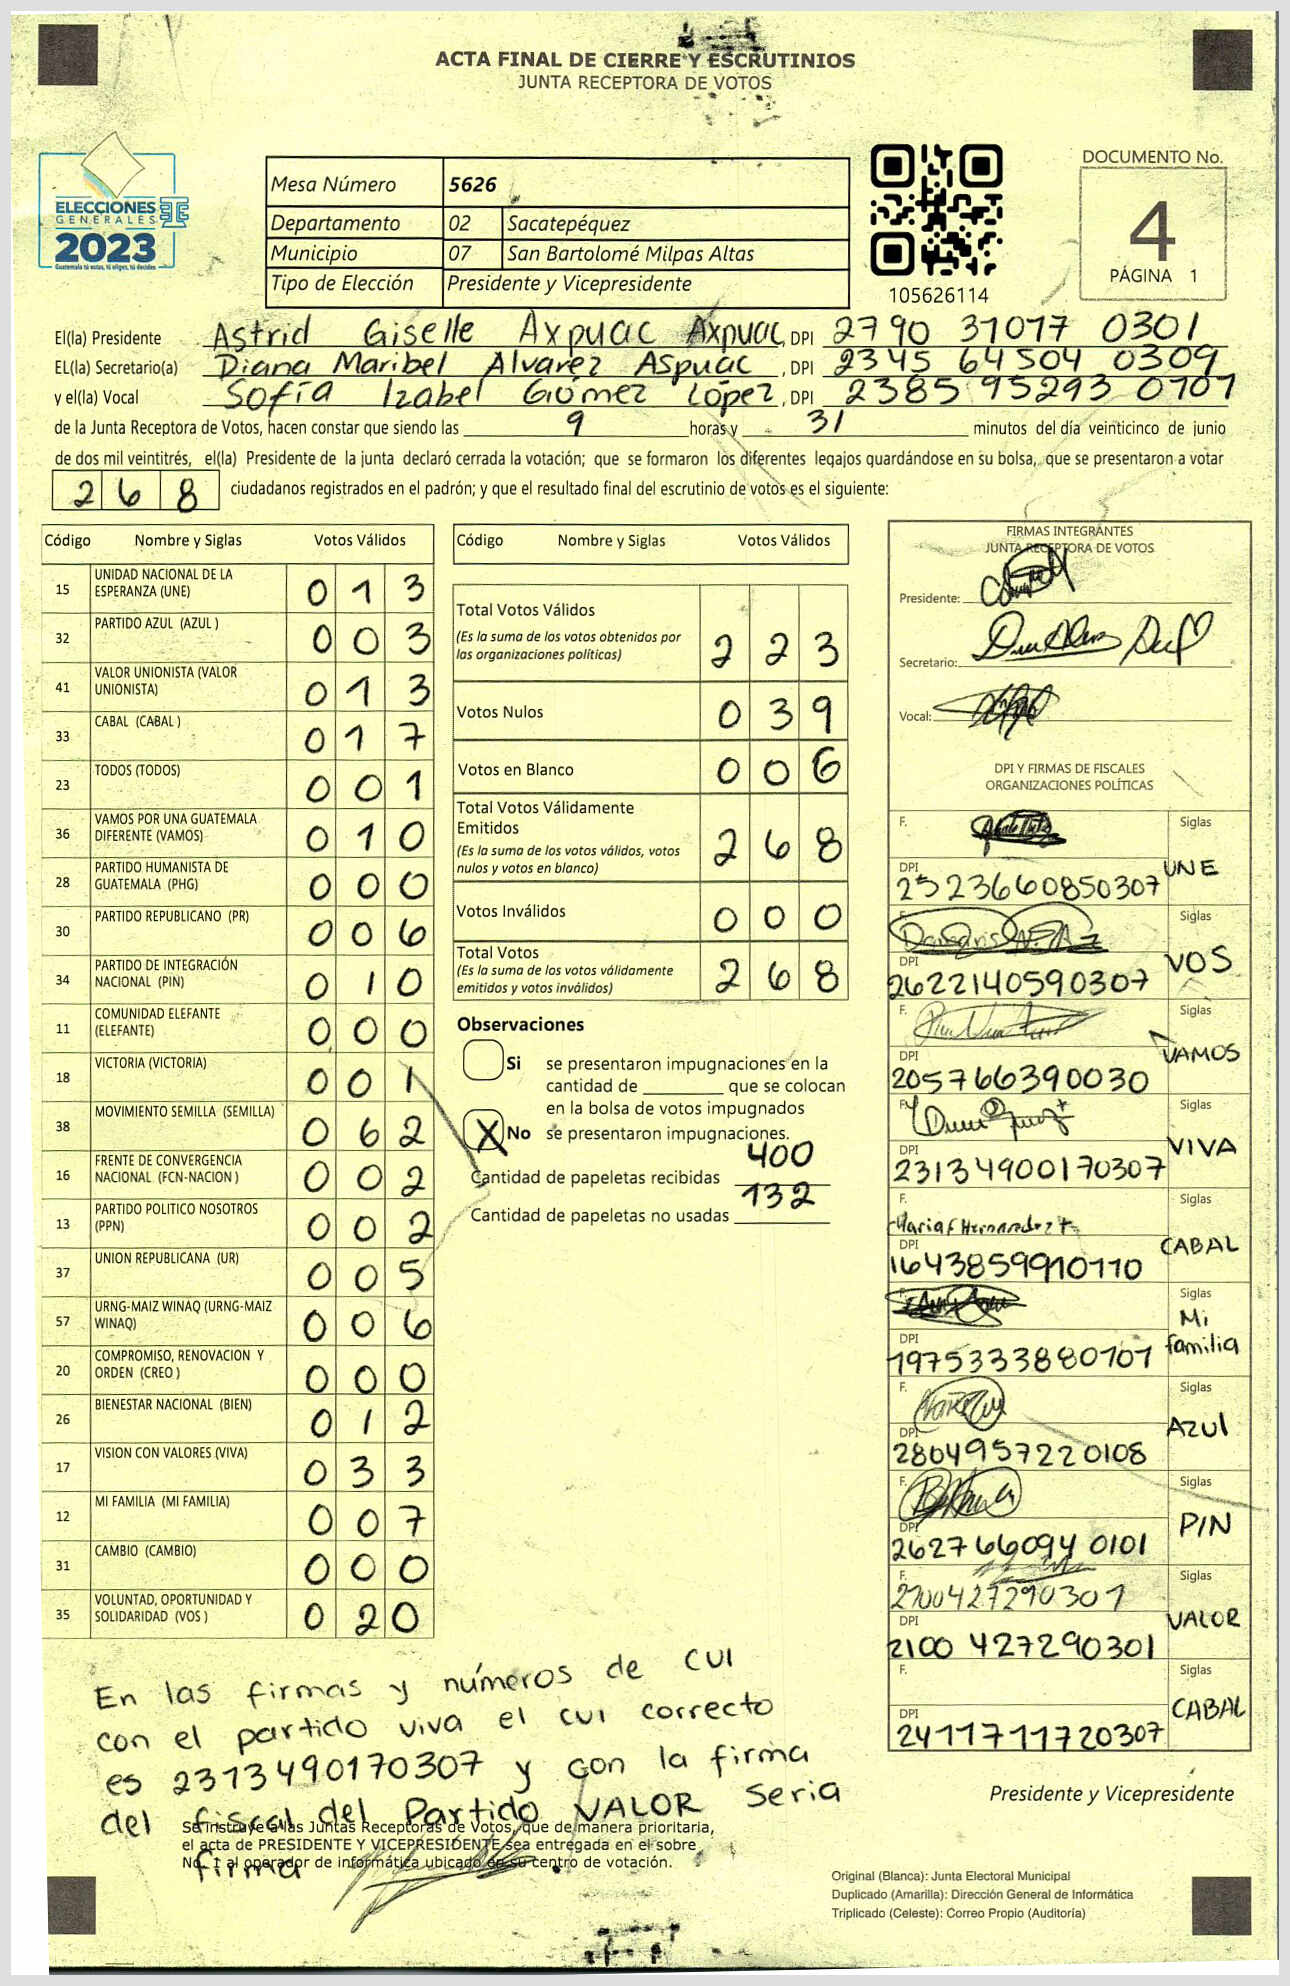 ACTA FINAL DE CIERRE Y ESCRUTINIOS
JUNTA RECEPTORA DE VOTOS
ELECCIONES
GENERALES
2023
Guatemala tú votas, tú eliges, tú decides
Mesa Número 5626
Departamento 02 Sacatepéquez
Municipio 07 San Bartolomé Milpas Altas
Tipo de Elección Presidente y Vicepresidente
105626114
DOCUMENTO No.
4
PÁGINA 1
El(la) Presidente Astrid Giselle Axpuac Axpuac, DPI 2790 31017 0301
EL(la) Secretario(a) Diana Maribel Alvarez Aspuac, DPI 2345 64504 0309
y el(la) Vocal Sofía Izabel Gómez López, DPI 2385 95293 0101
de la Junta Receptora de Votos, hacen constar que siendo las 9 horas y 31 minutos del día veinticinco de junio
de dos mil veintitrés, el(la) Presidente de la junta declaró cerrada la votación; que se formaron los diferentes legajos guardándose en su bolsa, que se presentaron a votar
268 ciudadanos registrados en el padrón; y que el resultado final del escrutinio de votos es el siguiente:
Código Nombre y Siglas Votos Válidos
15 UNIDAD NACIONAL DE LA ESPERANZA (UNE) 0 1 3
32 PARTIDO AZUL (AZUL ) 0 0 3
41 VALOR UNIONISTA (VALOR UNIONISTA) 0 1 3
33 CABAL (CABAL ) 0 1 7
23 TODOS (TODOS) 0 0 1
36 VAMOS POR UNA GUATEMALA DIFERENTE (VAMOS) 0 1 0
28 PARTIDO HUMANISTA DE GUATEMALA (PHG) 0 0 0
30 PARTIDO REPUBLICANO (PR) 0 0 6
34 PARTIDO DE INTEGRACIÓN NACIONAL (PIN) 0 1 0
11 COMUNIDAD ELEFANTE (ELEFANTE) 0 0 0
18 VICTORIA (VICTORIA) 0 0 1
38 MOVIMIENTO SEMILLA (SEMILLA) 0 6 2
16 FRENTE DE CONVERGENCIA NACIONAL (FCN-NACION ) 0 0 2
13 PARTIDO POLITICO NOSOTROS (PPN) 0 0 2
37 UNION REPUBLICANA (UR) 0 0 5
57 URNG-MAIZ WINAQ (URNG-MAIZ WINAQ) 0 0 6
20 COMPROMISO, RENOVACION Y ORDEN (CREO ) 0 0 0
26 BIENESTAR NACIONAL (BIEN) 0 1 2
17 VISION CON VALORES (VIVA) 0 3 3
12 MI FAMILIA (MI FAMILIA) 0 0 7
31 CAMBIO (CAMBIO) 0 0 0
35 VOLUNTAD, OPORTUNIDAD Y SOLIDARIDAD (VOS ) 0 2 0
Código Nombre y Siglas Votos Válidos
Total Votos Válidos
(Es la suma de los votos obtenidos por
las organizaciones políticas) 2 2 3
Votos Nulos 0 3 9
Votos en Blanco 0 0 6
Total Votos Válidamente
Emitidos
(Es la suma de los votos válidos, votos
nulos y votos en blanco) 2 6 8
Votos Inválidos 0 0 0
Total Votos
(Es la suma de los votos válidamente
emitidos y votos inválidos) 2 6 8
Observaciones
Si se presentaron impugnaciones en la
cantidad de ________ que se colocan
en la bolsa de votos impugnados
X No se presentaron impugnaciones.
Cantidad de papeletas recibidas 400
Cantidad de papeletas no usadas 132
FIRMAS INTEGRANTES
JUNTA RECEPTORA DE VOTOS
Presidente:
Secretario:
Vocal:
DPI Y FIRMAS DE FISCALES
ORGANIZACIONES POLÍTICAS
F. Siglas
DPI 2523660850307 UNE
F. Siglas
DPI 2622140590307 VOS
F. Siglas
DPI 205766390030 VAMOS
F. Siglas
DPI 23134900170307 VIVA
F. Siglas
DPI 1643859910110 CABAL
F. Siglas
DPI 1975333880101 Mi familia
F. Siglas
DPI 2804957220108 Azul
F. Siglas
DPI 2627660940101 PIN
F. 2100427290301 Siglas
DPI 2100 427290301 VALOR
F. Siglas
DPI 2411711720307 CABAL
En las firmas y números de CUI
con el partido viva el cui correcto
es 2313490170307 y con la firma
del fiscal del Partido VALOR Seria
firma
Se instruye a las Juntas Receptoras de Votos, que de manera prioritaria,
el acta de PRESIDENTE Y VICEPRESIDENTE sea entregada en el sobre
No. 1 al operador de informática ubicado en su centro de votación.
Presidente y Vicepresidente
Original (Blanca): Junta Electoral Municipal
Duplicado (Amarilla): Dirección General de Informática
Triplicado (Celeste): Correo Propio (Auditoría)